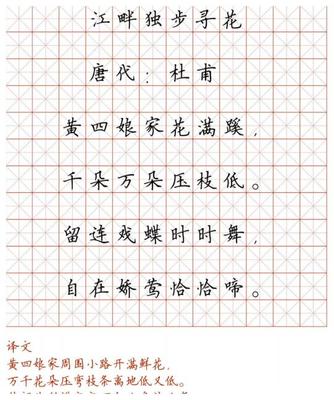 江畔独步寻花
唐代：杜甫
黄四娘家花满蹊，
千朵万朵压枝低。
留连戏蝶时时舞，
自在娇莺恰恰啼。
译文
黄四娘家周围小路开满鲜花，
万千花朵压弯枝条离地低又低。